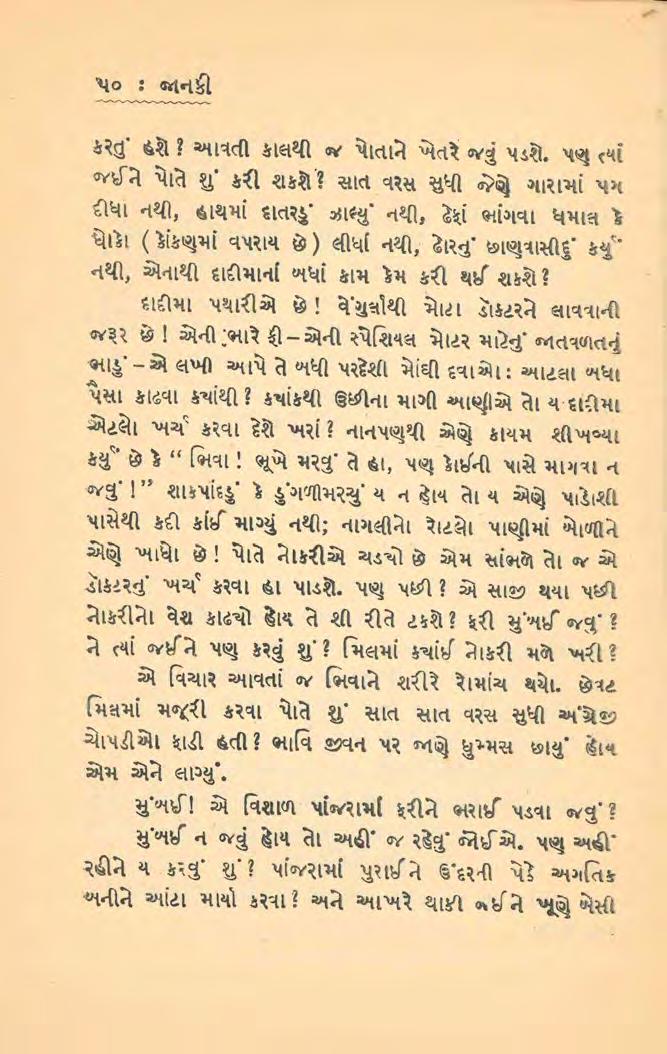 ૫૦ : જાનકી
કરતું હશે? આવતી કાલથી જ પોતાને ખેતરે જવું પડશે. પણ ત્યાં
જઈને પોતે શું કરી શકશે? સાત વરસ સુધી જેણે ગારામાં પગ
દીધા નથી, હાથમાં દાતરડું ઝાલ્યું નથી, ઢેફાં ભાંગવા ધમાલ કે
ધોકો (કોંકણમાં વપરાય છે) લીધાં નથી, ઢોરનું છાણવાસીદું કર્યું
નથી, એનાથી દાદીમાનાં બધાં કામ કેમ કરી થઈ શકશે?
દાદીમા પથારીએ છે! વેંગુર્લાથી મોટા ડૉક્ટરને લાવવાની
જરૂર છે! એની ભારે ફી – એની સ્પેશિયલ મોટર માટેનું જાતવળતનું
ભાડું – એ લખી આપે તે બધી પરદેશી મોંઘી દવાઓ: આટલા બધા
પૈસા કાઢવા કયાંથી? કયાંકથી ઉછીના માગી આણીએ તો ય દાદીમા
એટલો ખર્ચ કરવા દેશે ખરાં? નાનપણથી એણે કાયમ શીખવ્યા
કર્યું છે કે “ ભિવા! ભૂખે મરવું તે હા, પણ કોઈની પાસે માગવા ન
જવું!” શાકપાંદડું કે ડુંગળીમરચું ય ન હોય તો ય એણે પાડોશી
પાસેથી કદી કાંઈ માગ્યું નથી; નાગલીનો રોટલો પાણીમાં બોળીને
એણે ખાધો છે! પોતે નોકરીએ ચડયો છે એમ સાંભળે તો જ એ
ડૉક્ટરનું ખર્ચ કરવા હા પાડશે. પણ પછી? એ સાજી થયા પછી
નોકરીનો વેશ કાઢયો હોય તે શી રીતે ટકશે? ફરી મુંબઈ જવું?
ને ત્યાં જઈને પણ કરવું શું? મિલમાં કયાંઈ નોકરી મળે ખરી?
એ વિચાર આવતાં જ ભિવાને શરીરે રોમાંચ થયો. છેવટ
મિલમાં મજૂરી કરવા પોતે શું સાત સાત વરસ સુધી અંગ્રેજી
ચોપડીઓ ફાડી હતી? ભાવિ જીવન પર જાણે ધુમ્મસ છાયું હોય
એમ એને લાગ્યું.
મુંબઈ! એ વિશાળ પાંજરામાં ફરીને ભરાઈ પડવા જવું?
મુંબઈ ન જવું હોય તો અહીં જ રહેવું જોઈએ. પણ અહીં
રહીને ય કરવું શું? પાંજરામાં પુરાઈને ઉંદરની પેઠે અગતિક
બનીને આંટા માર્યા કરવા? અને આખરે થાકી જઈને ખૂણે બેસી